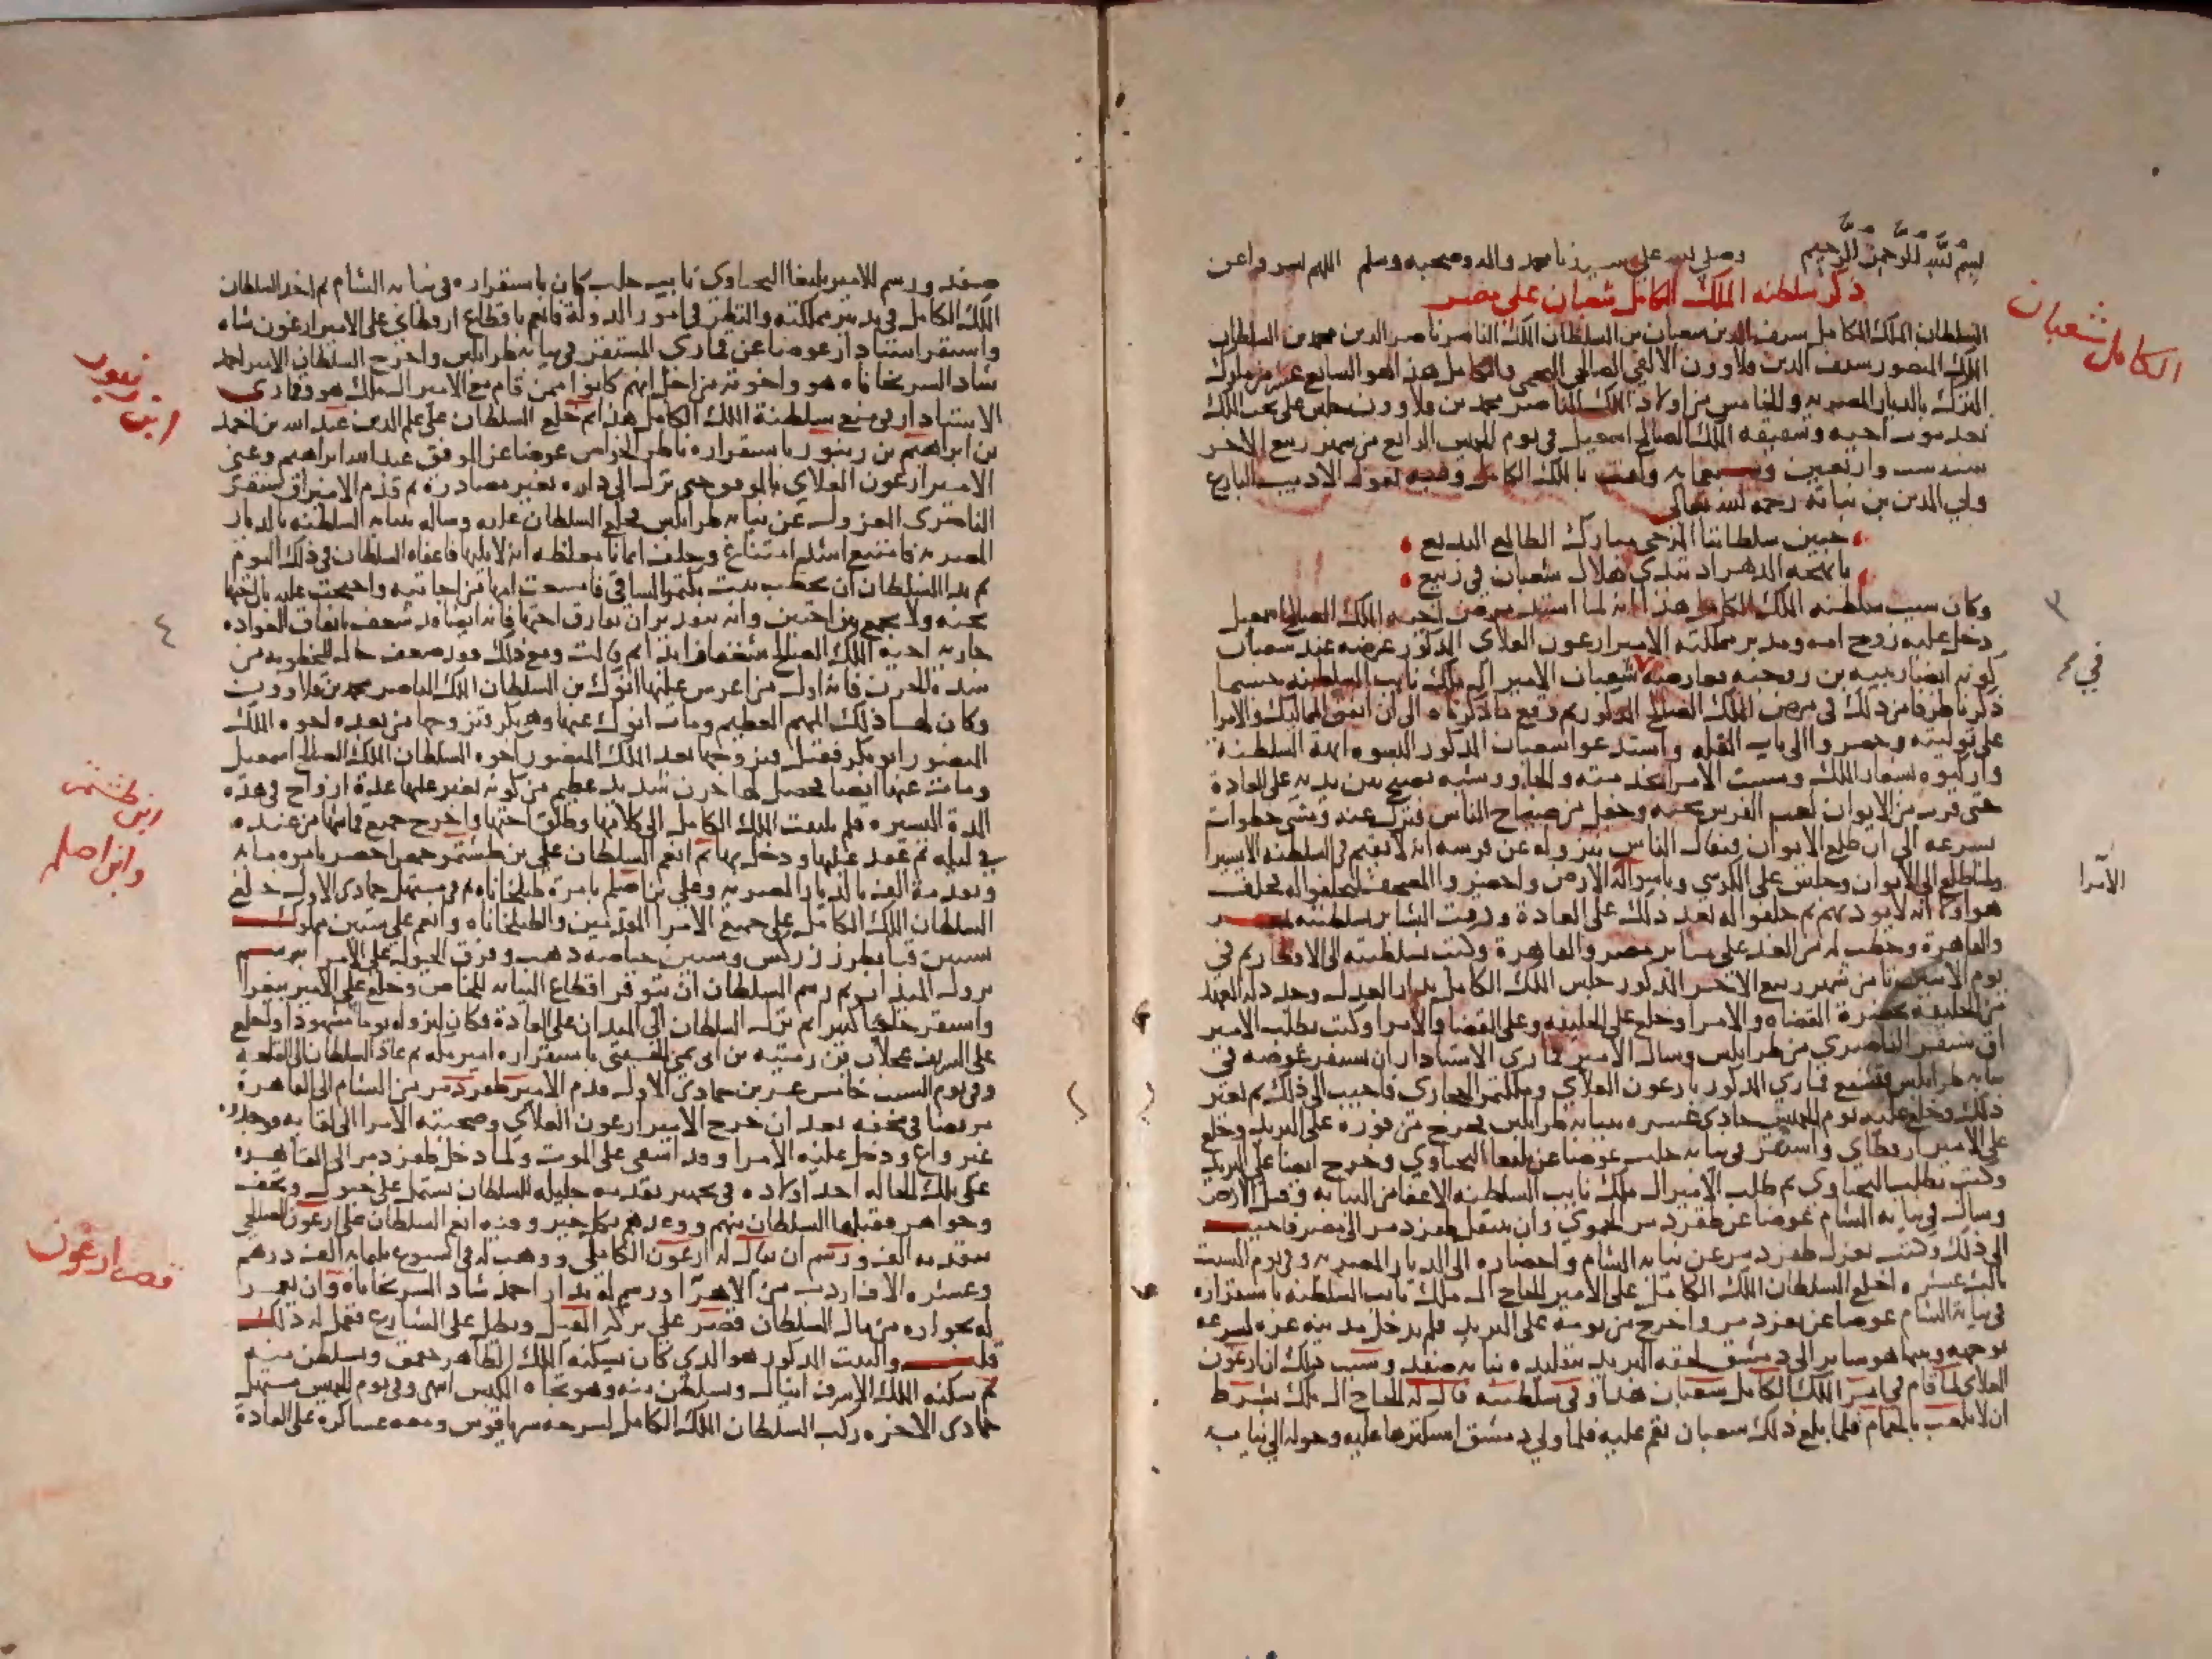 بسم الله الرحمن الرحيم وصلى الله على سيدنا محمد واله وصحبه وسلم اللهم يسر واعن
ذكر سلطنة الملك الكامل شعبان على مصر
الكامل شعبان
السلطان الملك الكامل سيف الدين شعبان بن السلطان الملك الناصر ناصر الدين محمد بن السلطان
الملك المنصور سيف الدين قلاوون الالفي الصالحي النجمي والكامل هذا هو السابع عشر من ملوك
الترك بالديار المصريه والخامس من اولاد الملك الناصر محمد بن قلاوون جلس على تخت الملك
بعد موت اخيه وشقيقه الملك الصالح اسمعيل في يوم الخميس الرابع من شهر ربيع الاخر
سنه ست واربعين وسبعمايه ولقب بالملك الكامل وفيه يقول الاديب البارع
جمال الدين بن نباتة رحمه الله تعالى
جبين سلطاننا المرجى مبارك الطالع البديع
يا بهجة الدهر اذ تبدى هلال شعبان في ربيع
وكان سبب سلطنه الملك الكامل هذا انه لما اشتد مرض اخيه الملك الصالح اسمعيل
دخل عليه زوج امه ومدبر مملكته الامير ارغون العلاي المذكور عرضه عند شعبان
كونه ايضا ربيبه بن زوجته فعارضه شعبان الامير ال ملك نايب السلطنه حسبما
ذكرناه من ذلك في مرض الملك الصالح المذكور ثم وقع ما ذكرناه الى ان اتفق المماليك والامرا
على توليته وحضروا الى باب القله واستدعوا شعبان المذكور البسوه ابهة السلطنة
واركبوه بشعار الملك ومشت الامرا بخدمته والجاوشيه تصيح بين يديه على العادة
حتى قرب من الايوان لعب الفرس تحته وجفل من صياح الناس فنزل عنه ومشى خطوات
بسرعه الى ان طلع الايوان فتفاءل الناس بنزوله عن فرسه انه لا يقيم في السلطنه الا يسيرا
ولما طلع الى الايوان وجلس على الكرسي وباسوا له الارض واحضروا المصحف ليحلفوا له فحلف
هو اولا انه لا يوذيهم ثم حلفوا له بعد ذلك على العادة ودقت البشاير بسلطنته بمصر
والقاهرة وخطب له من الغد على منابر مصر والقاهرة وكتب بسلطنته الى الاقطار ثم في
يوم الاثنين ثامن شهر ربيع الاخر المذكور جلس الملك الكامل بدار العدل وجدد له العهد
من الخليفه بحضرة القضاه والامرا وخلع على الخليفه وعلى القضاه والامرا وكتب بطلب الامير
اق سنقر الناصري من طرابلس وسال الامير قماري الاستادار ان يستقر عوضه في
نيابه طرابلس وتشفع قماري المذكور بارغون العلاي وملكتمر الحجازي فاجيب الى ذلك ثم تغير
ذلك وخلع عليه يوم الخميس حادي عشره بنيابه طرابلس فخرج من فوره على البريد وخلع
على الامير ارقطاي واستقر في نيابه حلب عوضا عن يلبغا اليحياوي وخرج ايضا على البريد
وكتب بطلب اليحياوي ثم طلب الامير ال ملك نايب السلطنه الاعفا من النيابه وقبل الارض
وسال في نيابه الشام عوضا عن طقزدمر الحموي وان ينقل طقزدمر الى مصر فاجيب
الى ذلك وكتب بعزل طقزدمر عن نيابه الشام واحضاره الى الديار المصريه وفي يوم السبت
ثالث عشره خلع السلطان الملك الكامل على الامير الحاج ال ملك نايب السلطنه باستقراره
في نيابة الشام عوضا عن طقزدمر واخرج من يومه على البريد فلم يدخل مدينه غزه لسرعه
توجهه وبينما هو ساير الى دمشق لحقه البريد بتقليده نيابه صفد وسبب ذلك ان ارغون
العلاي لما قام في امر الملك الكامل شعبان هذا وفي سلطنته قال له الحاج ال ملك بشرط
ان لا يلعب بالحمام فلما بلغ ذلك شعبان نقم عليه فلما ولي دمشق استكثرها عليه وحوله الى نيابه
في
الامرا
صفد ورسم للامير يلبغا اليحياوي نايب حلب كان باستقراره في نيابه الشام ثم اخذ السلطان
الملك الكامل في تدبير مملكته والنظر في امور الدولة فانعم باقطاع ارقطاي على الامير ارغون شاه
واستقر استادار عوضا عن قماري المستقر في نيابه طرابلس واخرج السلطان الامير احمد
شاد الشربخاناه هو واخوته من اجل انهم كانوا ممن قام مع الامير ال ملك هو وقماري
الاستادار في منع سلطنة الملك الكامل هذا ثم خلع السلطان على علم الدين عبد الله بن احمد
بن ابراهيم بن زنبور باستقراره ناظر الخواص عوضا عن الموفق عبد الله ابراهيم وعني
الامير ارغون العلاي بالموفق حتى نزل الى داره بغير مصادرة ثم قدم الامير اق سنقر
الناصري المعزول عن نيابه طرابلس فخلع السلطان عليه وساله بنيابه السلطنه بالديار
المصريه فامتنع اشد امتناع وحلف ايمانا مغلظه انه لا يليها فاعفاه السلطان في ذلك اليوم
ثم بدا للسلطان ان يخطب بنت بكتمر الساقي فامتنعت امها من اجابته واحتجت عليه بان اختها
تحته ولا يجمع بين اختين وانه بتقدير ان يفارق اختها فانه ايضا قد شغف باتفاق العواده
جاريه اخيه الملك الصالح شغفا زايدا ثم قالت ومع ذلك فقد ضعف حال المخطوبه من
شدة الحزن فانه اول من اعرس عليها انوك بن السلطان الملك الناصر محمد بن قلاوون
وكان لها ذلك المهم العظيم ومات انوك عنها وهي بكر فتزوجها من بعده اخوه الملك
المنصور ابو بكر فقتل فتزوجها بعد الملك المنصور اخوه السلطان الملك الصالح اسمعيل
ومات عنها ايضا فحصل لها حزن شديد عظيم من كونه تغير عليها عدة ازواج في هذه
المدة اليسيره فلم يلتفت الملك الكامل الى كلامها وطلق اختها واخرج جميع قماشها من عنده
في ليله ثم عقد عليها ودخل بها ثم انعم السلطان على بن طشتمر حمص اخضر بامره مايه
وتقدمة الف بالديار المصريه وعلى بن اصلم بامرة طبلخاناه ثم في مستهل جمادى الاول خلع
السلطان الملك الكامل على جميع الامرا المقدمين والطبلخاناه وانعم على ستين مملوك
بستين قبا بطرز زركش وستين حياصه ذهب وفرق الخيول على الامرا برسم
نزول الميدان ثم رسم السلطان ان يتوفر اقطاع النيابه للخاص وخلع على الامير بيغرا
واستقر حاجبا كبيرا ثم نزل السلطان الى الميدان على العادة فكان لنزوله يوما مشهودا وخلع
على الشريف عجلان بن رميثه بن ابي نمي الحسني باستقراره امير مكه ثم عاد السلطان الى القلعه
وفي يوم السبت خامس عشرين جمادى الاول قدم الامير طقزدمر من الشام الى القاهرة
مريضا في محفه بعد ان خرج الامير ارغون العلاي وصحبته الامرا الى لقايه ووجدوه
غير واع ودخل عليه الامرا وقد اشفى على الموت ولما دخل طقزدمر الى القاهره
على تلك الحاله اخذ اولاده في تجهيز تقدمه جليله للسلطان تشتمل على خيول وتحف
وجواهر فقبلها السلطان منهم ووعدهم بكل خير وفيه انعم السلطان على ارغون الصالحي
بتقدمه الف ورسم ان يقال له ارغون الكاملي ووهب له في اسبوع ثلمايه الف درهم
وعشره الاف اردب من الاهرا ورسم له بدار احمد شاد الشربخاناه وان يعمر
له بجواره من مال السلطان قصر على بركه الفيل ويطل على الشارع فعمل له ذلك
قلت والبيت المذكور هو الذي كان يسكنه الملك الظاهر جقمق وتسلطن منه
ثم سكنه الملك الاشرف اينال وتسلطن منه وهو تجاه الكبش انتهى وفي يوم الخميس مستهل
جمادى الاخره ركب السلطان الملك الكامل لسرحه سرياقوس ومعه عساكره على العادة
ابن زنبور
٤
ابن طشتمر
وابن اصلم
قصر ارغون